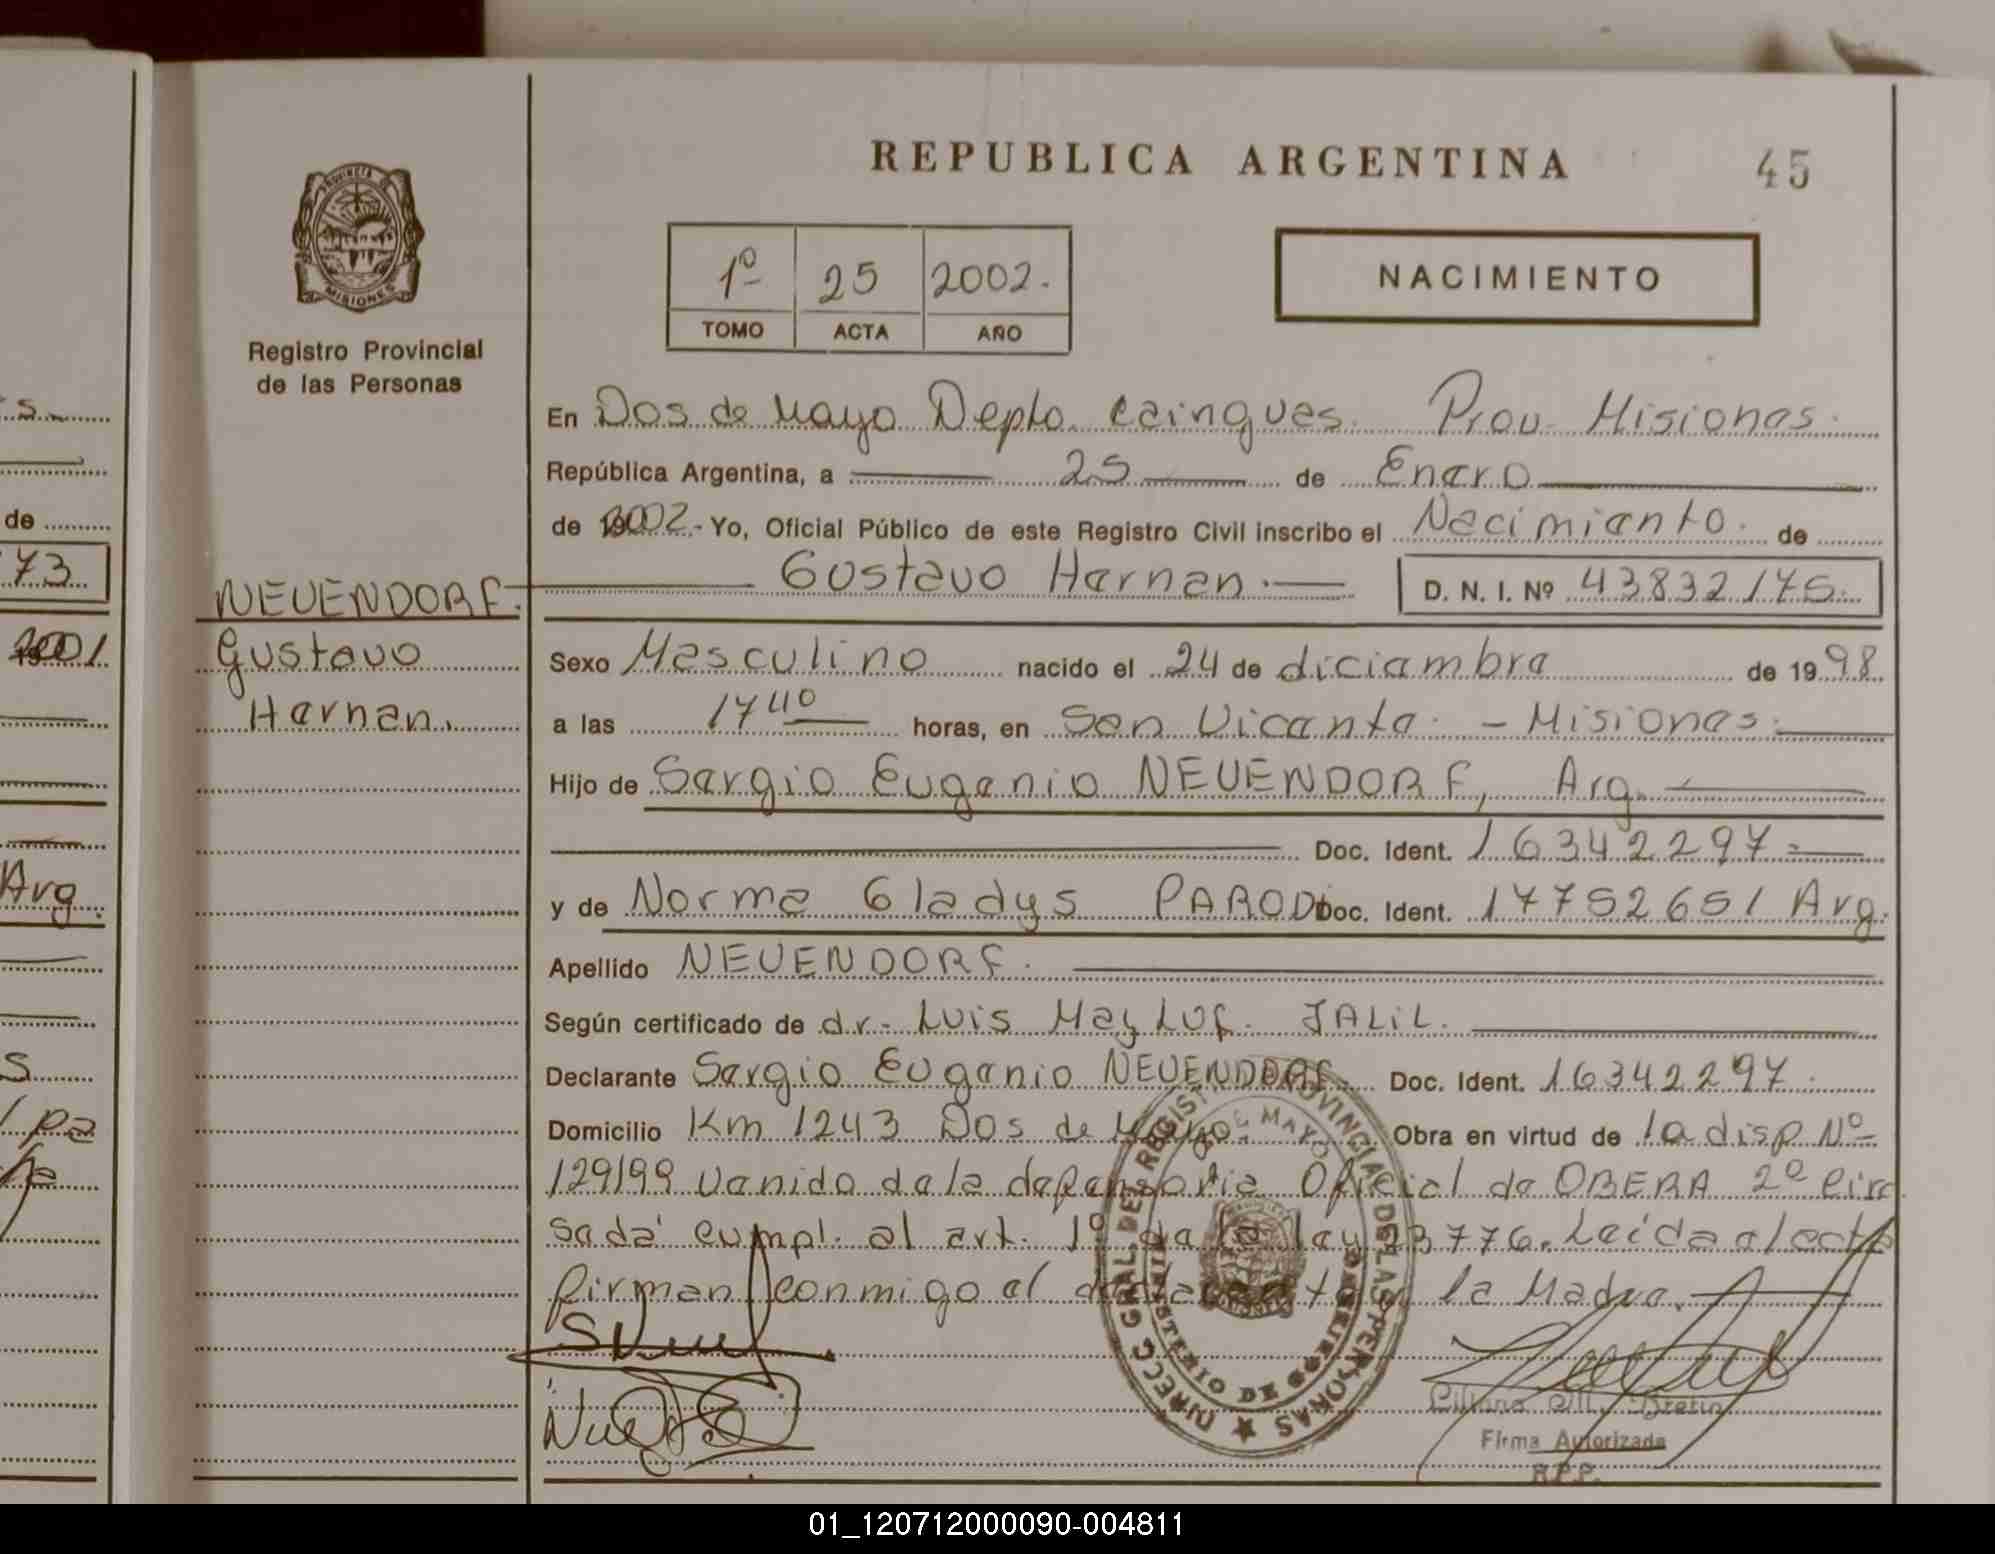 REPUBLICA ARGENTINA
45
PROVINCIA DE MISIONES
Registro Provincial
de las Personas
1º 25 2002.
TOMO ACTA AÑO
NACIMIENTO
En Dos de Mayo Depto. Caingues. Prov. Misiones.
República Argentina, a 25 de Enero
de 2002.- Yo, Oficial Público de este Registro Civil inscribo el Nacimiento. de
Gustavo Hernan. D. N. I. Nº 43832175.
NEUENDORF.
Gustavo
Hernan.
Sexo Masculino nacido el 24 de diciembre de 1998
a las 17 40 horas, en San Vicente. - Misiones.
Hijo de Sergio Eugenio NEUENDORF, Arg.
Doc. Ident. 16342297=
y de Norma Gladys PARODI Doc. Ident. 17752651 Arg.
Apellido NEUENDORF.
Según certificado de dr. Luis JALIL.
Declarante Sergio Eugenio NEUENDORF. Doc. Ident. 16342297.
Domicilio Km 1243 Dos de Mayo. Obra en virtud de la disp Nº
129/99 venido de la defensoria Oficial de OBERA 2º Circ
se da cumpl. al art. 1º de la ley 23776. Leida el acta
firman conmigo el declarante y la Madre.
DIRECC GRAL. DEL REGISTRO PROVINCIAL DE LAS PERSONAS
DOS DE MAYO
MINISTERIO DE GOBIERNO
Firma Autorizada
R.P.P.
s.
de
73
2001
Arg.
S
pa
01_120712000090-004811